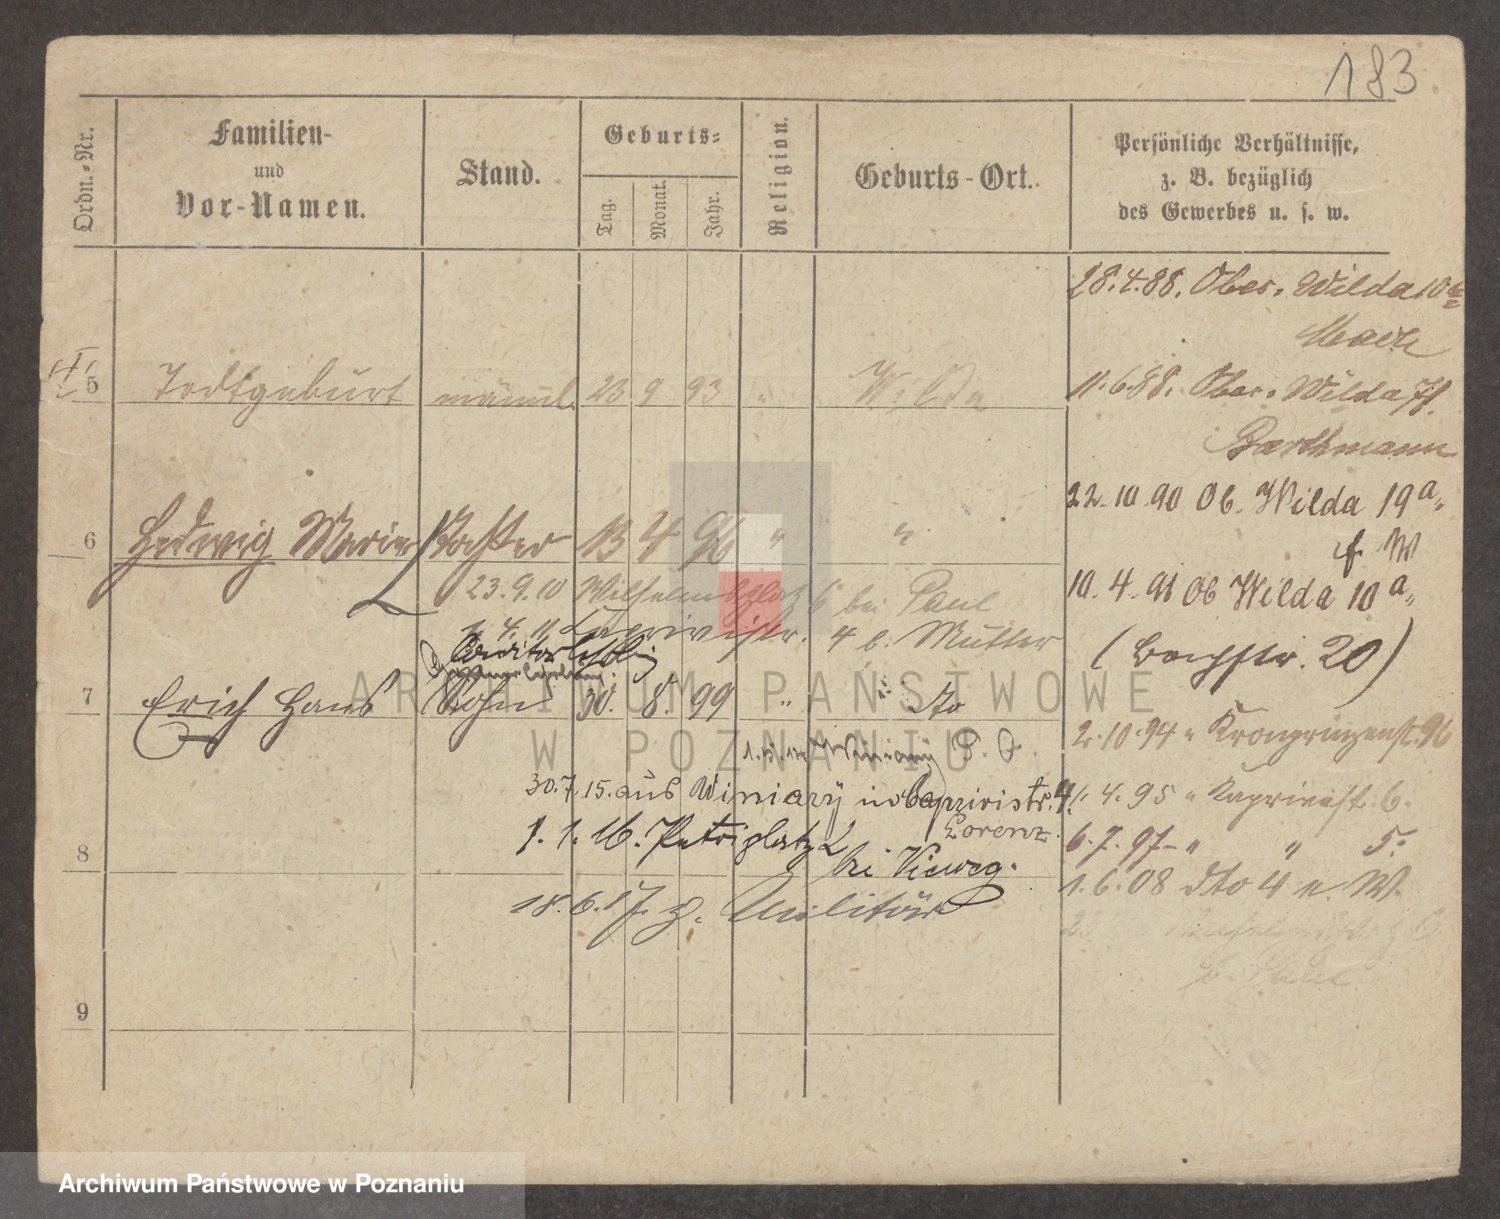 183
Ordn.-Nr.
Familien-
und
Vor-Namen.
Stand.
Geburts-
Tag.
Monat.
Jahr.
Religion.
Geburts-Ort.
Persönliche Verhältnisse,
z. B. bezüglich
des Gewerbes u. s. w.
28.4.88. Ober-Wilda 10
5 Todtgeburt männl. 23 9 93 " Wilda
11.6.88. Ober-Wilda 71.
Barthmann
22.10.90 Ob. Wilda 19a.
W
6 Hedwig Marie Tochter 13 4 96 " "
10.4.91 Ob Wilda 10a.
23.9.10 Wilhelmsplatz 6 bei Paul
1.4.11 Caprivistr. 4 b. Mutter
(Bachstr. 20)
Conditorlehrling
7 Erich Hans Sohn 30. 8. 99 " dto
2.10.94 " Kronprinzenstr. 96
Winiary
30.7.15. aus Winiary in Caprivistr. 4.
1.4.95 " Kaprivistr. 6.
Lorenz.
6.7.97 " " 5.
8
1.1.16. Petriplatz 2
bei Vieweg.
1.6.08 dto 4 W.
18.6.17. z. Militär
9
ARCHIWUM PAŃSTWOWE
W POZNANIU
Archiwum Państwowe w Poznaniu